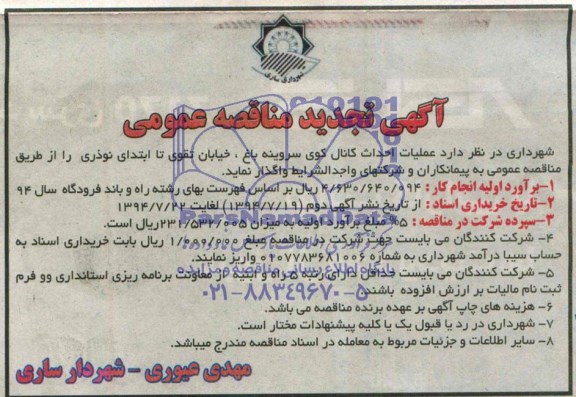 شهرداری ساری
آگهی تجدید مناقصه عمومی
شهرداری در نظر دارد عملیات احداث کانال کوی سروینه باغ ، خیابان تقوی تا ابتدای نوذری را از طریق
مناقصه عمومی به پیمانکاران و شرکتهای واجدالشرایط واگذار نماید.
۱-برآورد اولیه انجام کار : ۴/۶۳۰/۶۴۰/۰۹۴ ریال بر اساس فهرست بهای رشته راه و باند فرودگاه سال ۹۴
۲-تاریخ خریداری اسناد : از تاریخ نشر آگهی دوم (۱۳۹۴/۷/۱۹) لغایت ۱۳۹۴/۷/۲۲
۳-سپرده شرکت در مناقصه : ۵% مبلغ برآورد اولیه به میزان ۲۳۱/۵۳۲/۰۰۵ ریال است.
۴- شرکت کنندگان می بایست جهت شرکت در مناقصه مبلغ ۱/۰۰۰/۰۰۰ ریال بابت خریداری اسناد به
حساب سیبا درآمد شهرداری به شماره ۰۱۰۷۷۸۳۶۸۱۰۰۶ واریز نمایند.
۵- شرکت کنندگان می بایست حداقل دارای رتبه راه و ابنیه از معاونت برنامه ریزی استانداری وو فرم
ثبت نام مالیات بر ارزش افزوده باشند
۶- هزینه های چاپ آگهی بر عهده برنده مناقصه می باشد.
۷- شهرداری در رد یا قبول یک یا کلیه پیشنهادات مختار است.
۸- سایر اطلاعات و جزئیات مربوط به معامله در اسناد مناقصه مندرج میباشد.
مهدی عبوری - شهردار ساری
ParsNamadData
پایگاه اطلاع رسانی مناقصه و مزایده
۰۲۱-۸۸۳۴۹۶۷۰-۵